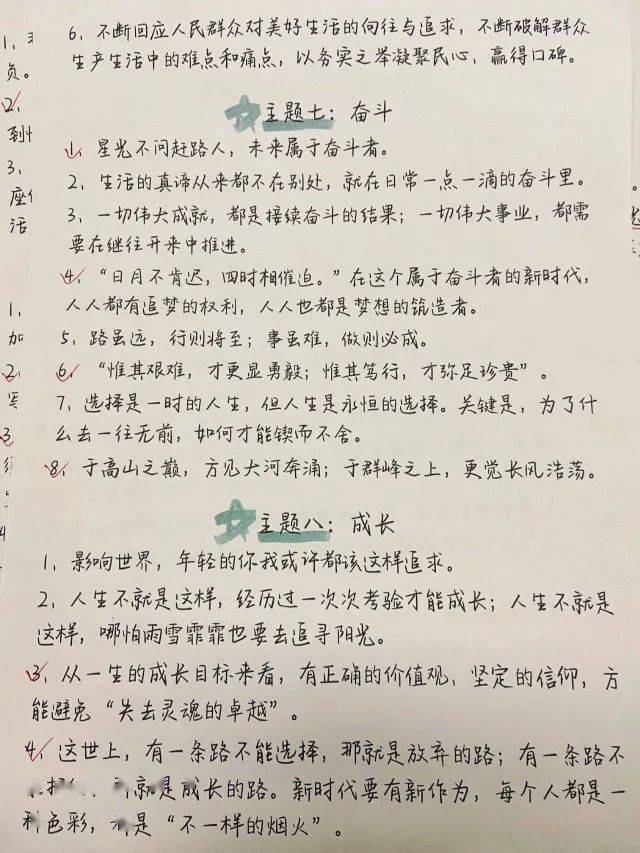 6、不断回应人民群众对美好生活的向往与追求，不断破解群众
生产生活中的难点和痛点，以务实之举凝聚民心，赢得口碑。
主题七：奋斗
1、星光不问赶路人，未来属于奋斗者。
2、生活的真谛从来都不在别处，就在日常一点一滴的奋斗里。
3、一切伟大成就，都是接续奋斗的结果；一切伟大事业，都需
要在继往开来中推进。
4、“日月不肯迟，四时相催迫。”在这个属于奋斗者的新时代，
人人都有追梦的权利，人人也都是梦想的筑造者。
5、路虽远，行则将至；事虽难，做则必成。
6、“惟其艰难，才更显勇毅；惟其笃行，才弥足珍贵”。
7、选择是一时的人生，但人生是永恒的选择。关键是，为了什
么去一往无前，如何才能锲而不舍。
8、于高山之巅，方见大河奔涌；于群峰之上，更觉长风浩荡。
主题八：成长
1、影响世界，年轻的你我或许都该这样追求。
2、人生不就是这样，经历过一次次考验才能成长；人生不就是
这样，哪怕雨雪霏霏也要去追寻阳光。
3、从一生的成长目标来看，有正确的价值观、坚定的信仰，方
能避免“失去灵魂的卓越”。
4、这世上，有一条路不能选择，那就是放弃的路；有一条路不
就是成长的路。新时代要有新作为，每个人都是一
色彩，是“不一样的烟火”。
1、
负。
2、
到
3、
座
活
1、
加
2、
写
3
4